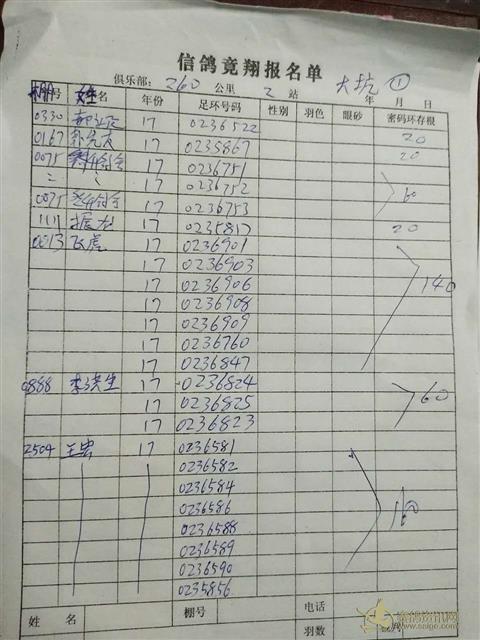 信鸽竞翔报名单
俱乐部： 260 公里 2 站 年 月 日 大坑 ①
棚号 姓名 年份 足环号码 性别 羽色 眼砂 密码环存根
0330 17 0236522
0167 17 0235867 20
0075 17 0236751 20
17 0236752 60
0075 17 0236753
1111 振龙 17 0235817 20
0013 飞虎 17 0236901
17 0236903
17 0236906 140
17 0236908
17 0236909
17 0236760
17 0236847
0888 李洪生 17 0236824
17 0236825 60
17 0236823
2504 王宏 17 0236581
0236582
0236584
0236586 160
0236588
0236589
0236590
0235856
姓 名 棚号 电话
羽数